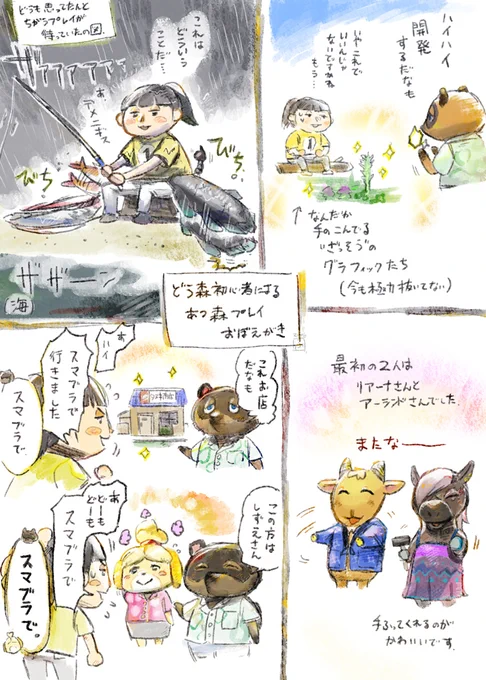 どうも思ってたんと
ちがうプレイが
待っていたの図。
ザァァァァァァ
これは
どういう
ことだ…
あ、
アメニデス
びち
びち。
ザザーン
海
ハイハイ
開発
するだなも
いやこれで
いいんじゃ
ないですかね
もう…
↑なんだか
手のこんでる
"ざっそう"の
グラフィックたち
(今も極力抜いてない)
どう森初心者による
あつ森プレイ
おぼえがき
これお店
だなも
あ、
ハイ
スマブラで
行きました
スマブラで
この方は
しずえさん
あ、
どーも
どーも
スマブラで
スマブラで。
最初の2人は
リアーナさんと
アーランドさんでした.
またなー
手ふってくれるのが
かわいいです.